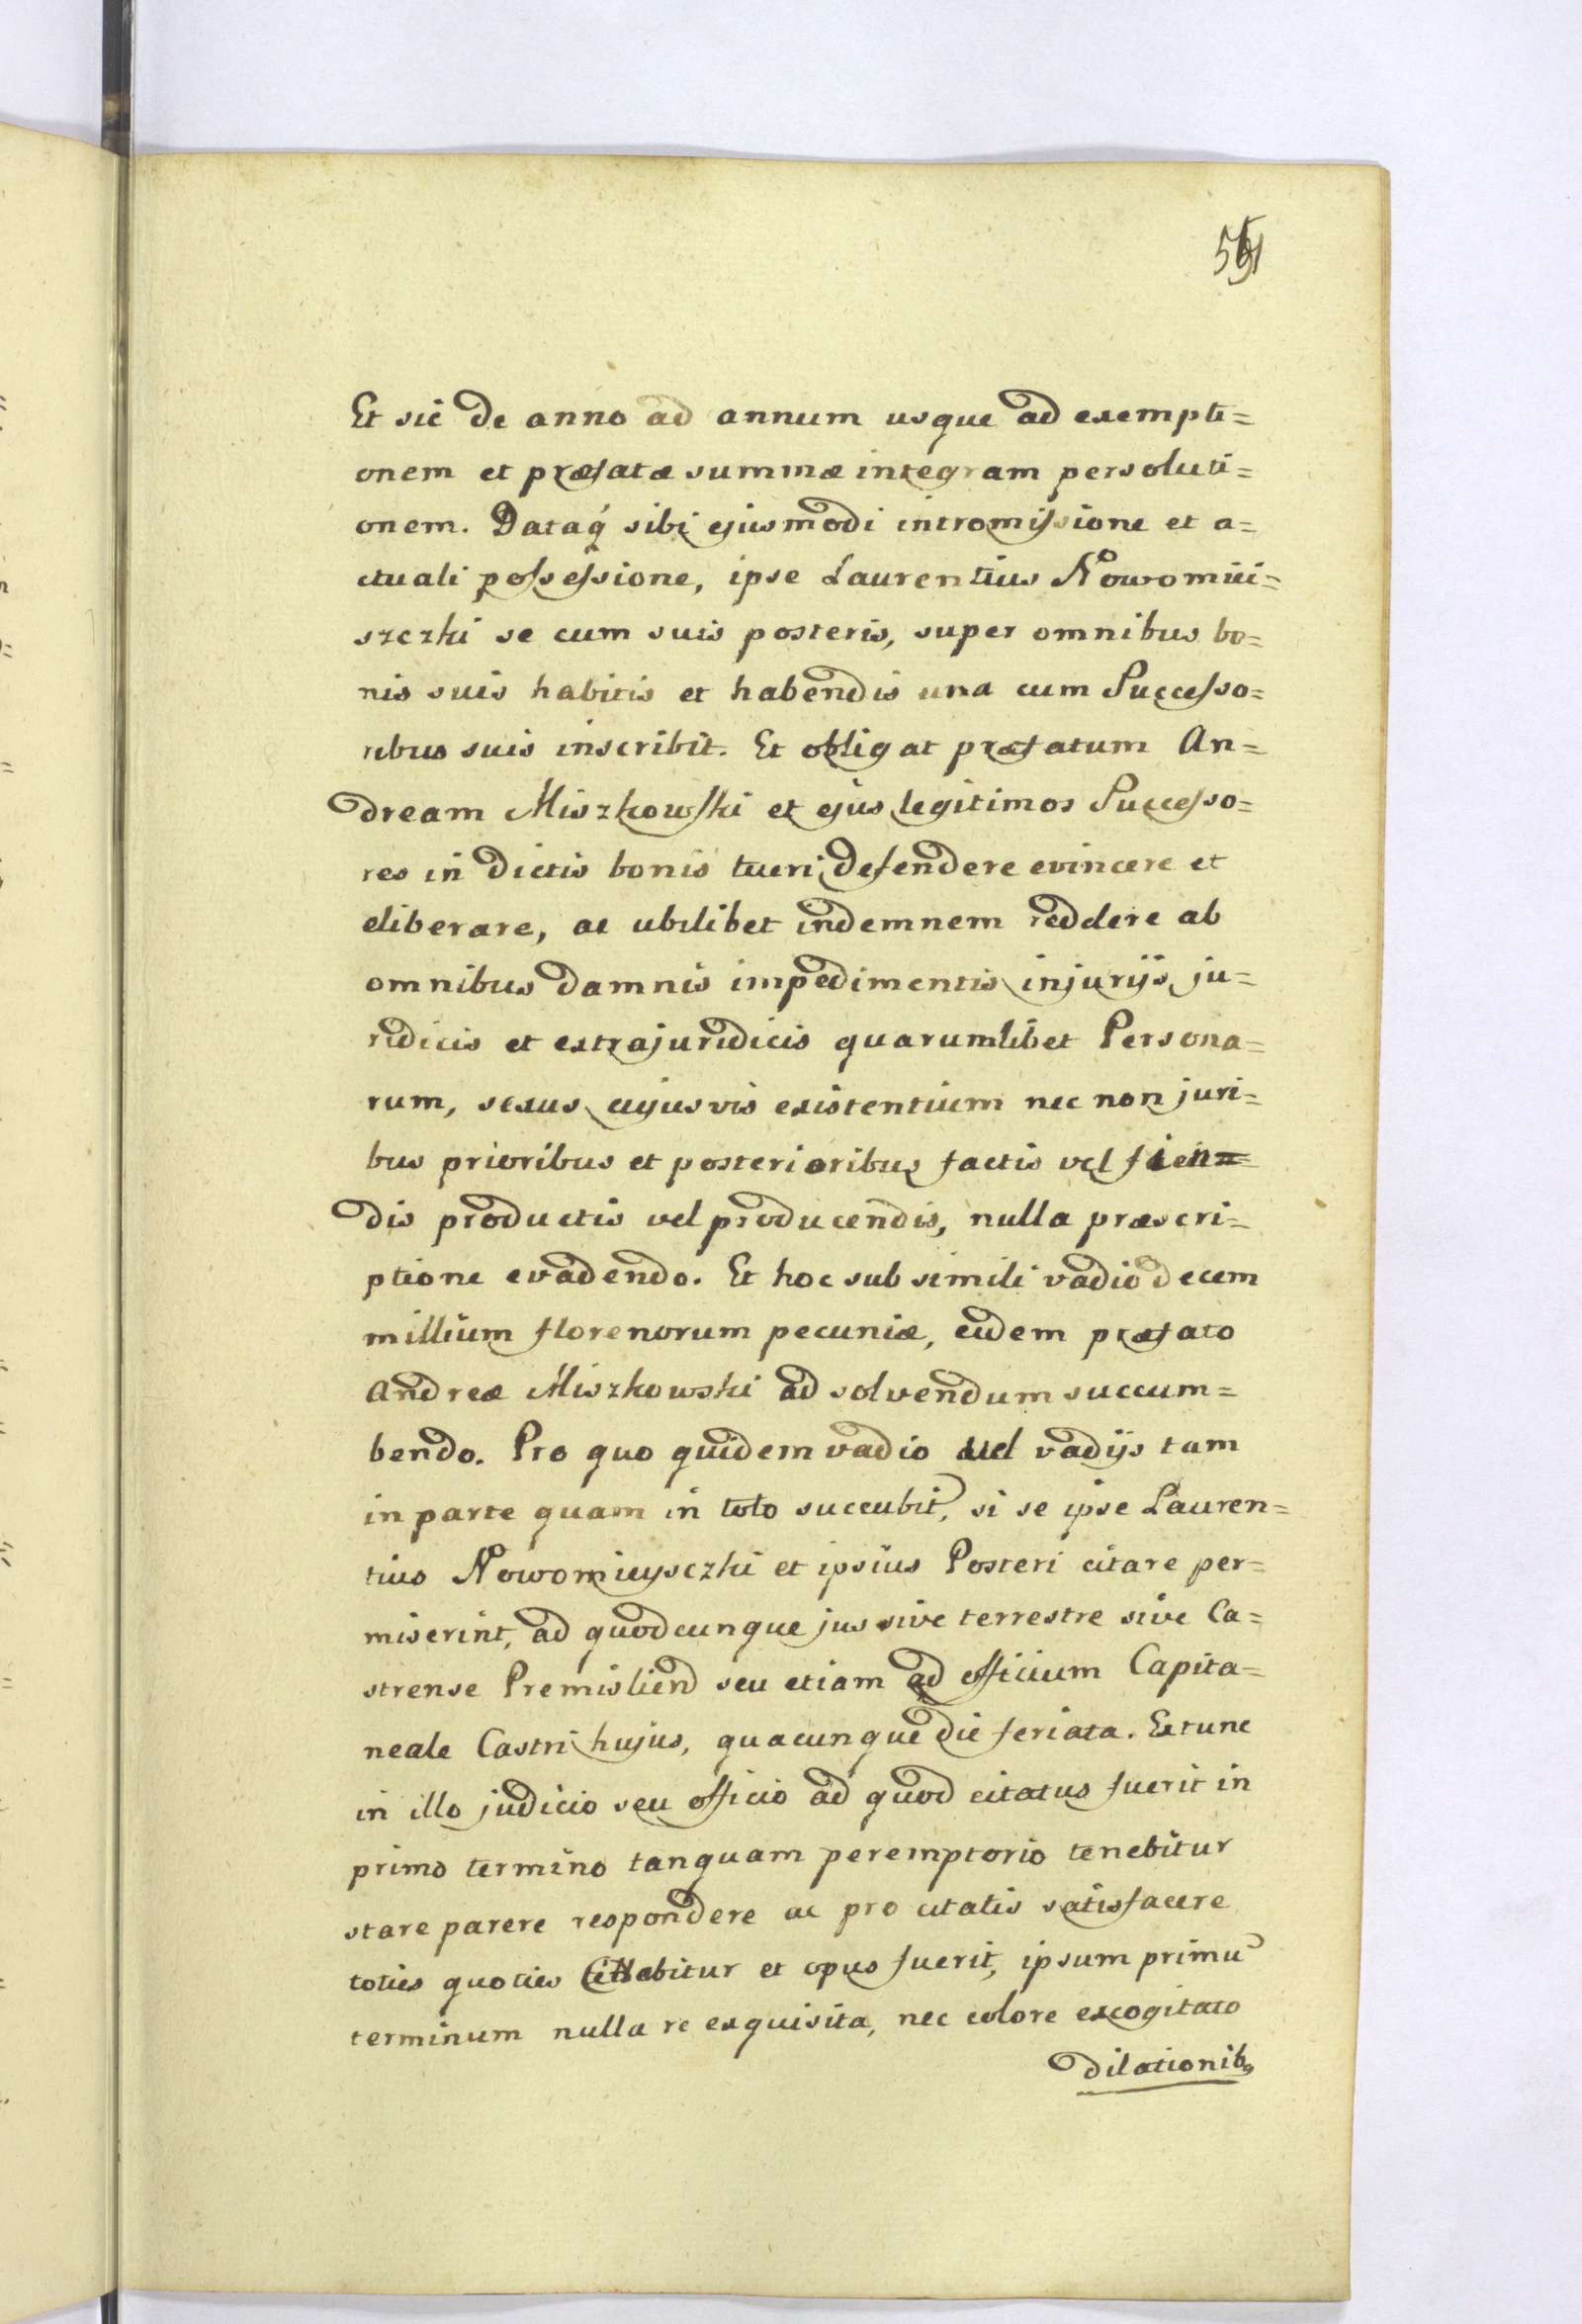 Et sic de anno ad annum usque ad exempti=
onem et præfatæ summæ integram persoluti=
onem. Dataq́ sibi ejusmodi intromissione et a=
ctuali possessione, ipse Laurentius Nowomiei=
szczki se cum suis posteris, super omnibus bo=
nis suis habitis et habendis una cum Successo=
ribus suis inscribit. Et obligat præfatum An=
dream Miszkowski et ejus legitimos Successo=
res in dictis bonis tueri, defendere evincere et
eliberare, ac ubilibet indemnem reddere ab
omnibus damnis impedimentis injurijs, ju=
ridicis et extrajuridicis quarumlibet Persona=
rum, sexus cujusvis existentium nec non juri=
bus prioribus et posterioribus factis vel fien=
dis productis vel producendis, nulla præscri=
ptione evadendo. Et hoc sub simili vadio decem
millium florenorum pecuniæ, eidem præfato
Andreæ Miszkowski ad solvendum succum=
bendo. Pro quo quidem vadio vel vadijs tam
in parte quam in toto succubit, si se ipse Lauren=
tius Nowomieysczki et ipsius Posteri citare per=
miserint, ad quodcunque jus sive terrestre sive Ca=
strense Premislien̄ seu etiam ad officium Capita=
neale Castri hujus, quacunque die feriata. Extunc
in illo judicio seu officio ad quod citatus fuerit in
primo termino tanquam peremptorio tenebitur
stare parere respondere ac pro citatis satisfacere
toties quoties Citabitur et opus fuerit, ipsum primū
terminum nulla re exquisita, nec colore excogitato
dilationib9